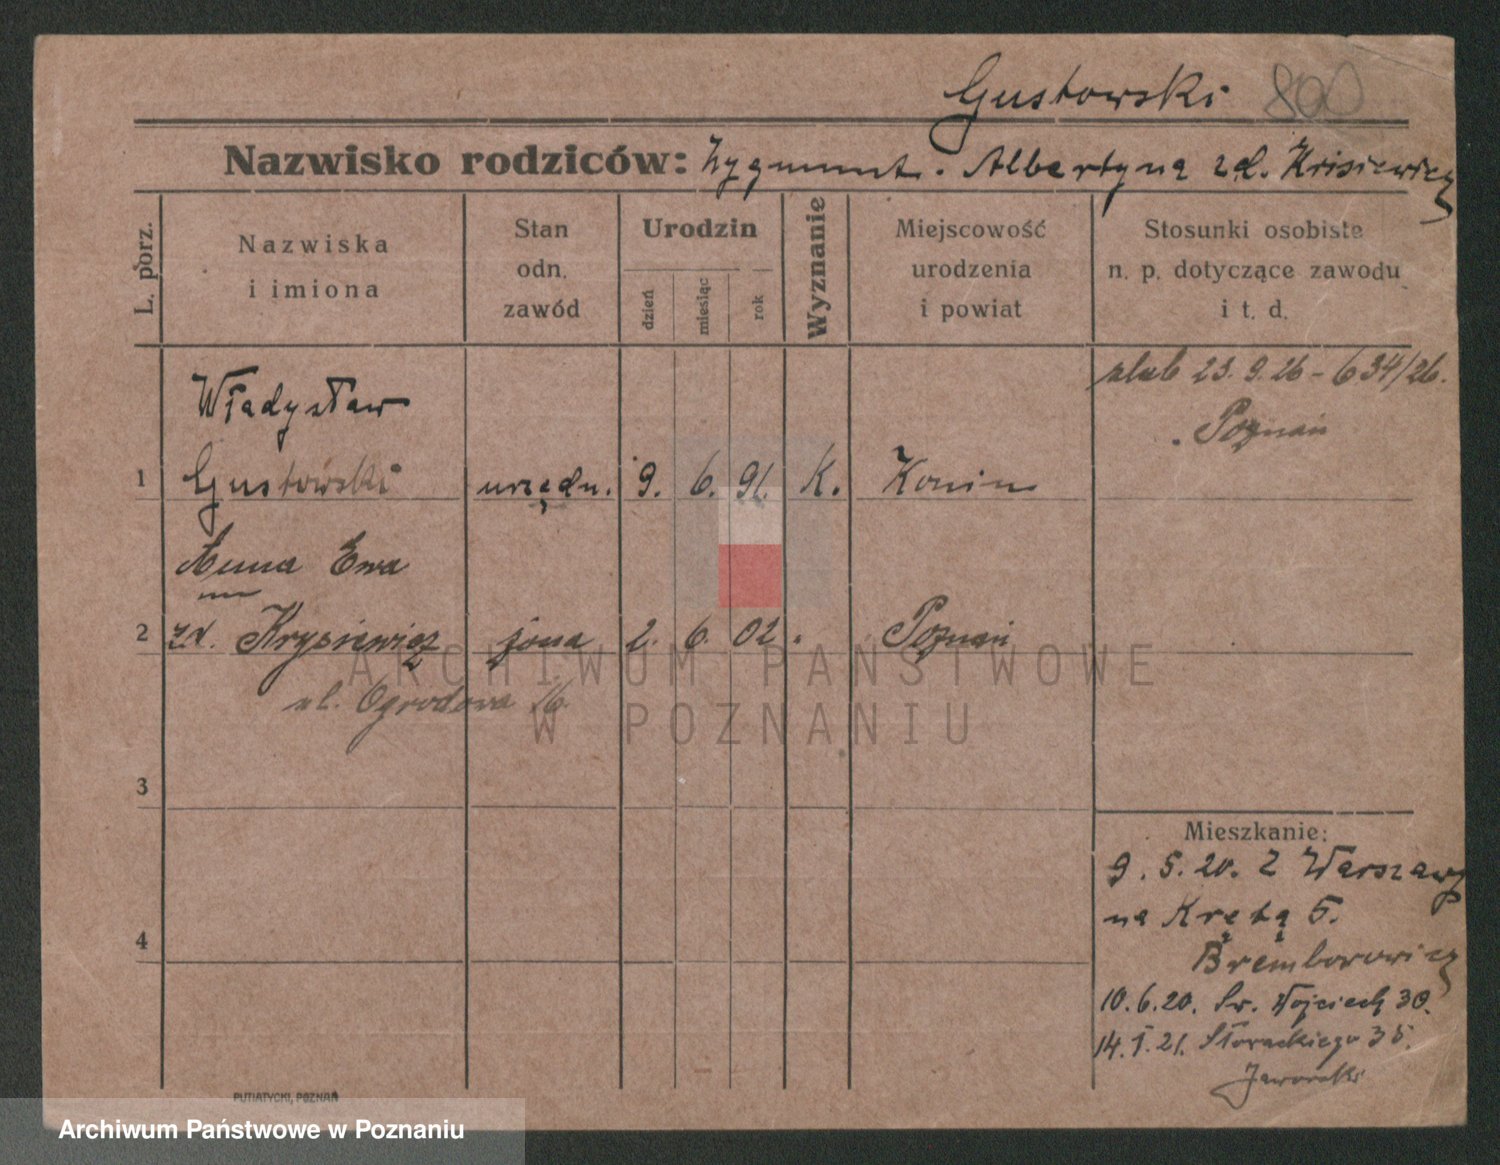 Gustowski 800
Nazwisko rodziców: Zygmunt. Albertyna zd. Krisiewicz
L. porz.
Nazwiska
i imiona
Stan
odn.
zawód
Urodzin
dzień
miesiąc
rok
Wyznanie
Miejscowość
urodzenia
i powiat
Stosunki osobiste
n. p. dotyczące zawodu
i t. d.
ślub 23. 9. 26 - 634/26.
Poznań
Władysław
1 Gustowski urzędn. 9. 6. 91. K. Konin
Anna Ewa
2 zd. Krysiewicz żona 2. 6. 02 " Poznań
ul. Ogrodowa 16
3
4
Mieszkanie:
9. 5. 20. Z Warszawy
na Krętą 5.
Bremborowicz
10. 6. 20. Św. Wojciech 30.
14. I. 21. Słowackiego 35.
Jaworski
PUTIATYCKI, POZNAŃ
ARCHIWUM PAŃSTWOWE
W POZNANIU
Archiwum Państwowe w Poznaniu